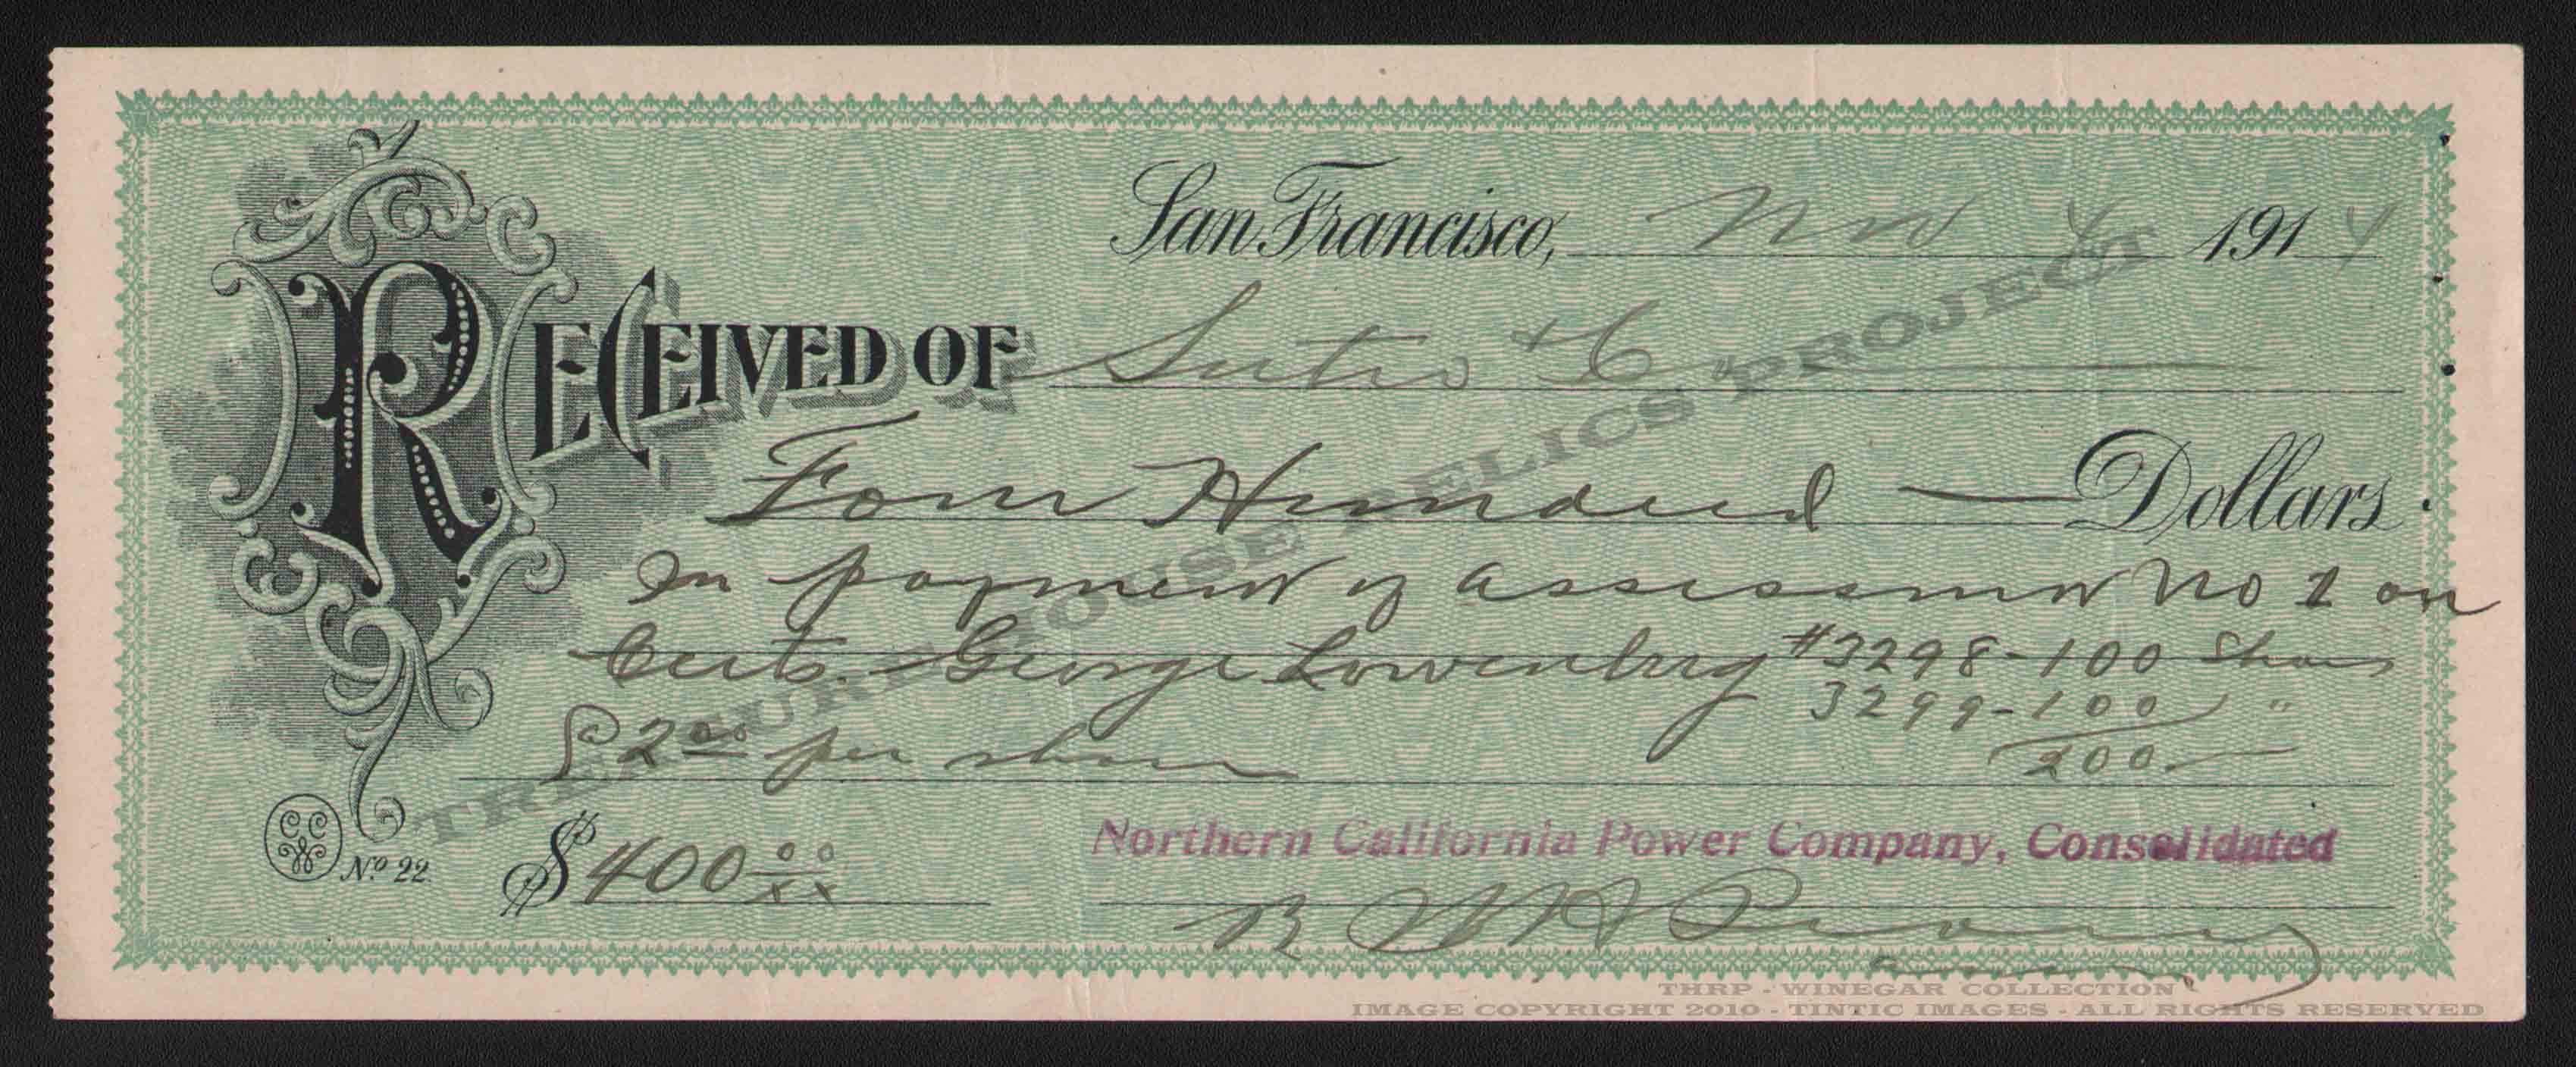 San Francisco, Nov 4 1914
RECEIVED OF Sutro & Co
Four Hundred Dollars
In payment of assessment No 1 on
Certs. George Lowenberg #3298-100 Shares
3299-100 "
@ 2 00 per share 200
No 22 $400 00/xx
Northern California Power Company, Consolidated
TREASURE HOUSE RELICS PROJECT
THRP - WINEGAR COLLECTION
IMAGE COPYRIGHT 2010 - TINTIC IMAGES - ALL RIGHTS RESERVED